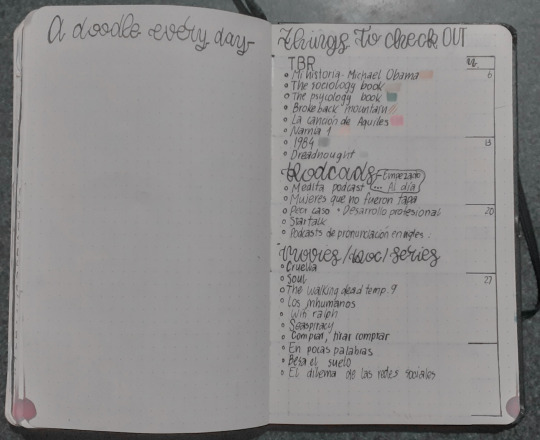 A doodle every day
Things To check OUT
TBR
Mi historia - Michael Obama
The sociology book
The psycology book
Brokeback mountain
La canción de Aquiles
Narnia 1
1984
Dreadnought
Podcads
Empezado
Al día
Medita podcast
Mujeres que no fueron tapa
Peor caso • Desarrollo profesional
Startalk
Podcasts de pronunciación en ingles.
Movies/doc/series
Cruella
Soul
The walking dead temp. 9
Los inhumanos
Win ralph
Seaspiracy
Comprar, tirar comprar
En pocas palabras
Besa el suelo
El dilema de las redes sociales
6
13
20
27